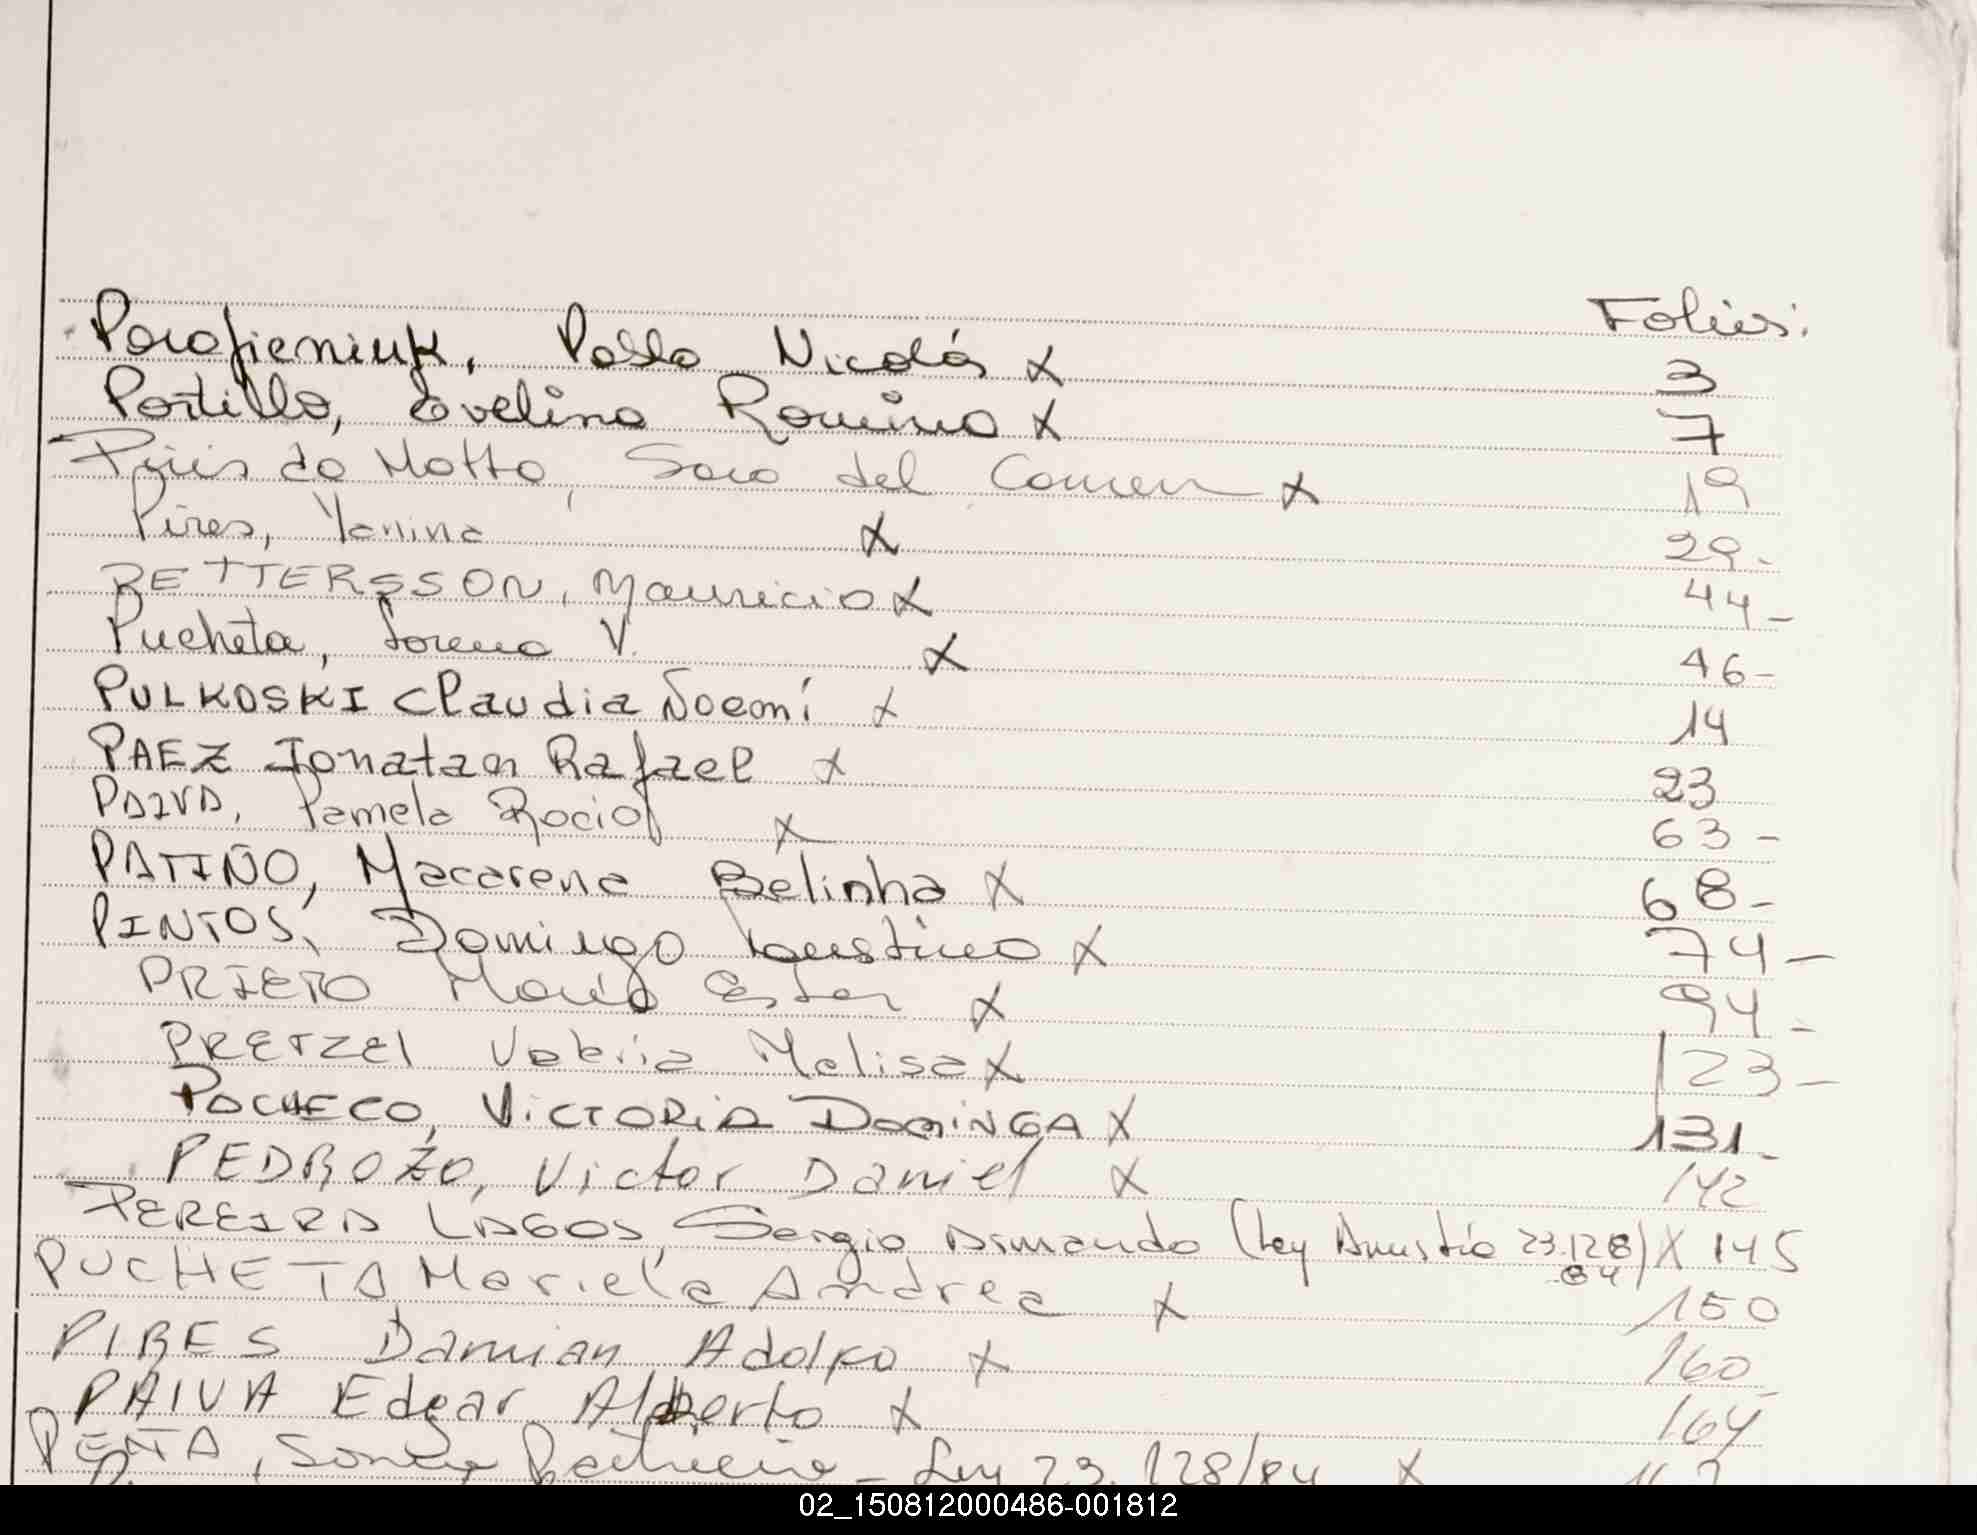 Folios:
Porofieniuk, Pablo Nicolás X 3
Portillo, Evelina Romina X 7
Piris da Motta, Sara del Carmen X 19
Pires, Yanina X 29-
PETTERSSON, Mauricio X 44-
Pucheta, Lorena V. X 46-
PULKOSKI Claudia Noemí X 14
PAEZ Jonatan Rafael X 23
PAIVA, Pamela Rocio X 63-
PATIÑO, Macarena Belinha X 68-
PINTOS, Domingo Faustino X 74-
PRIETO María Ester X 94-
PRETZEL Valeria Melisa X 123-
PACHECO, VICTORIA DOMINGA X 131-
PEDROZO, Victor Daniel X 142
PEREIRA LAGOS, Sergio Armando (Ley Amnistía 23.128/84) X 145
PUCHETA Mariela Andrea X 150
PIRES Damian Adolfo X 160-
PAIVA Edgar Alberto X 164
PEÑA, Patricia - Ley 23.128/84 X
02_150812000486-001812